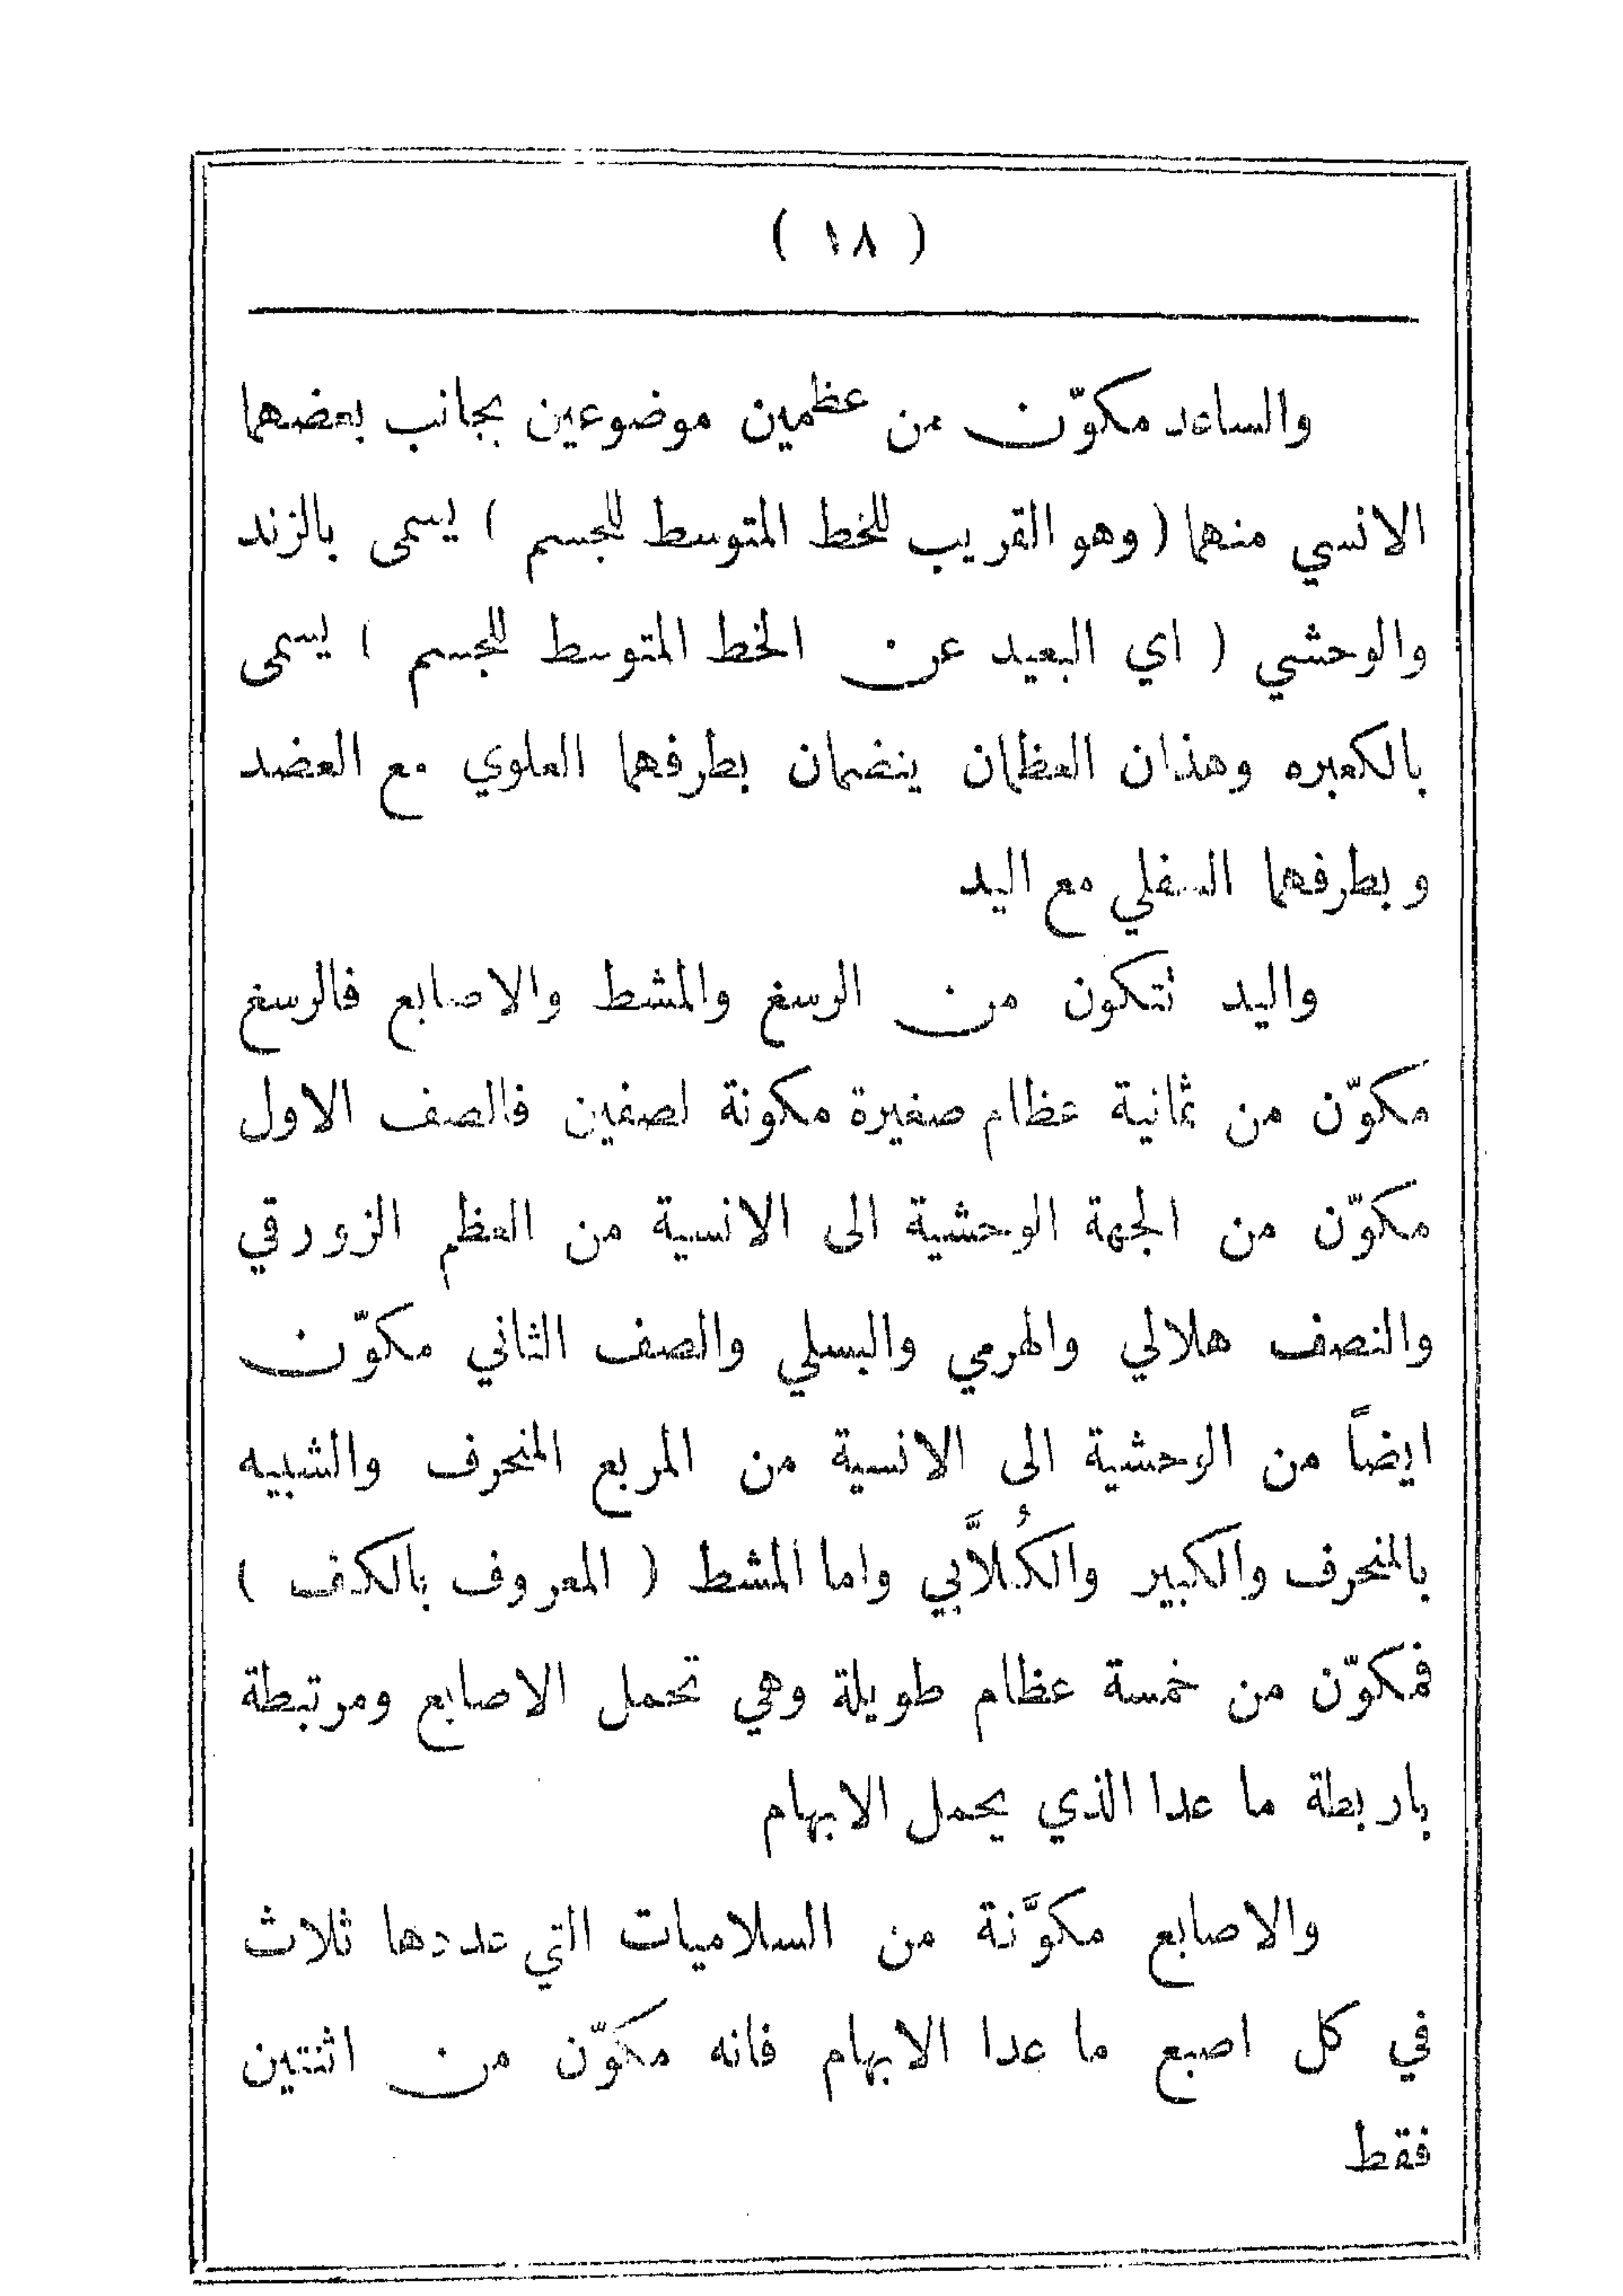 ( ١٨ )
والساعد مكوّن من عظمين موضوعين بجانب بعضهما
الانسي منهما ( وهو القريب للخط المتوسط للجسم ) يسمى بالزند
والوحشي ( اي البعيد عن الخط المتوسط للجسم ) يسمى
بالكعبره وهذان العظمان ينضمان بطرفهما العلوي مع العضد
وبطرفهما السفلي مع اليد
واليد تتكون من الرسغ والمشط والاصابع فالرسغ
مكوّن من ثمانية عظام صغيرة مكونة لصفين فالصف الاول
مكوّن من الجهة الوحشية الى الانسية من العظم الزورقي
والنصف هلالي والهرمي والبسلي والصف الثاني مكوّن
ايضاً من الوحشية الى الانسية من المربع المنحرف والشبيه
بالمنحرف والكبير والكُلَّابي واما المشط ( المعروف بالكف )
فمكوّن من خمسة عظام طويلة وهي تحمل الاصابع ومرتبطة
باربطة ما عدا الذي يحمل الابهام
والاصابع مكوَّنة من السلاميات التي عددها ثلاث
في كل اصبع ما عدا الابهام فانه مكوّن من اثنتين
فقط